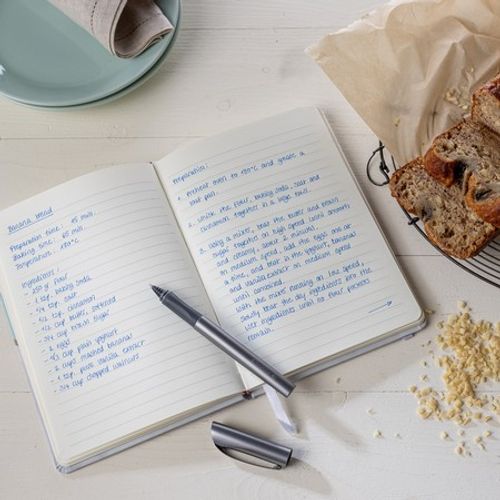 Banana bread
Preparation time: 15 min.
Baking time: 65 min.
Temperature: 180°C
Ingredients:
- 250 gr. flour
- 1 tsp. baking soda
- 1/4 tsp. salt
- 1/2 tsp. cinnamon
- 1/2 cup butter, softened
- 3/4 cup brown sugar
- 2 eggs
- 1/3 cup plain yoghurt
- 2 cups mashed bananas
- 1 tsp. pure vanilla extract
- 3/4 cup chopped walnuts
Preparation:
1. Preheat oven to 180°C and grease a
loaf pan.
2. Whisk the flour, baking soda, salt and
cinnamon together in a large bowl.
3. Using a mixer, beat the butter and brown
sugar together on high speed until smooth
and creamy, about 2 minutes.
On medium speed, add the eggs one at
a time, and beat in the yoghurt, bananas
and vanilla extract on medium speed
until combined.
With the mixer running on low speed,
slowly beat the dry ingredients into the
wet ingredients until no flour pockets
remain.